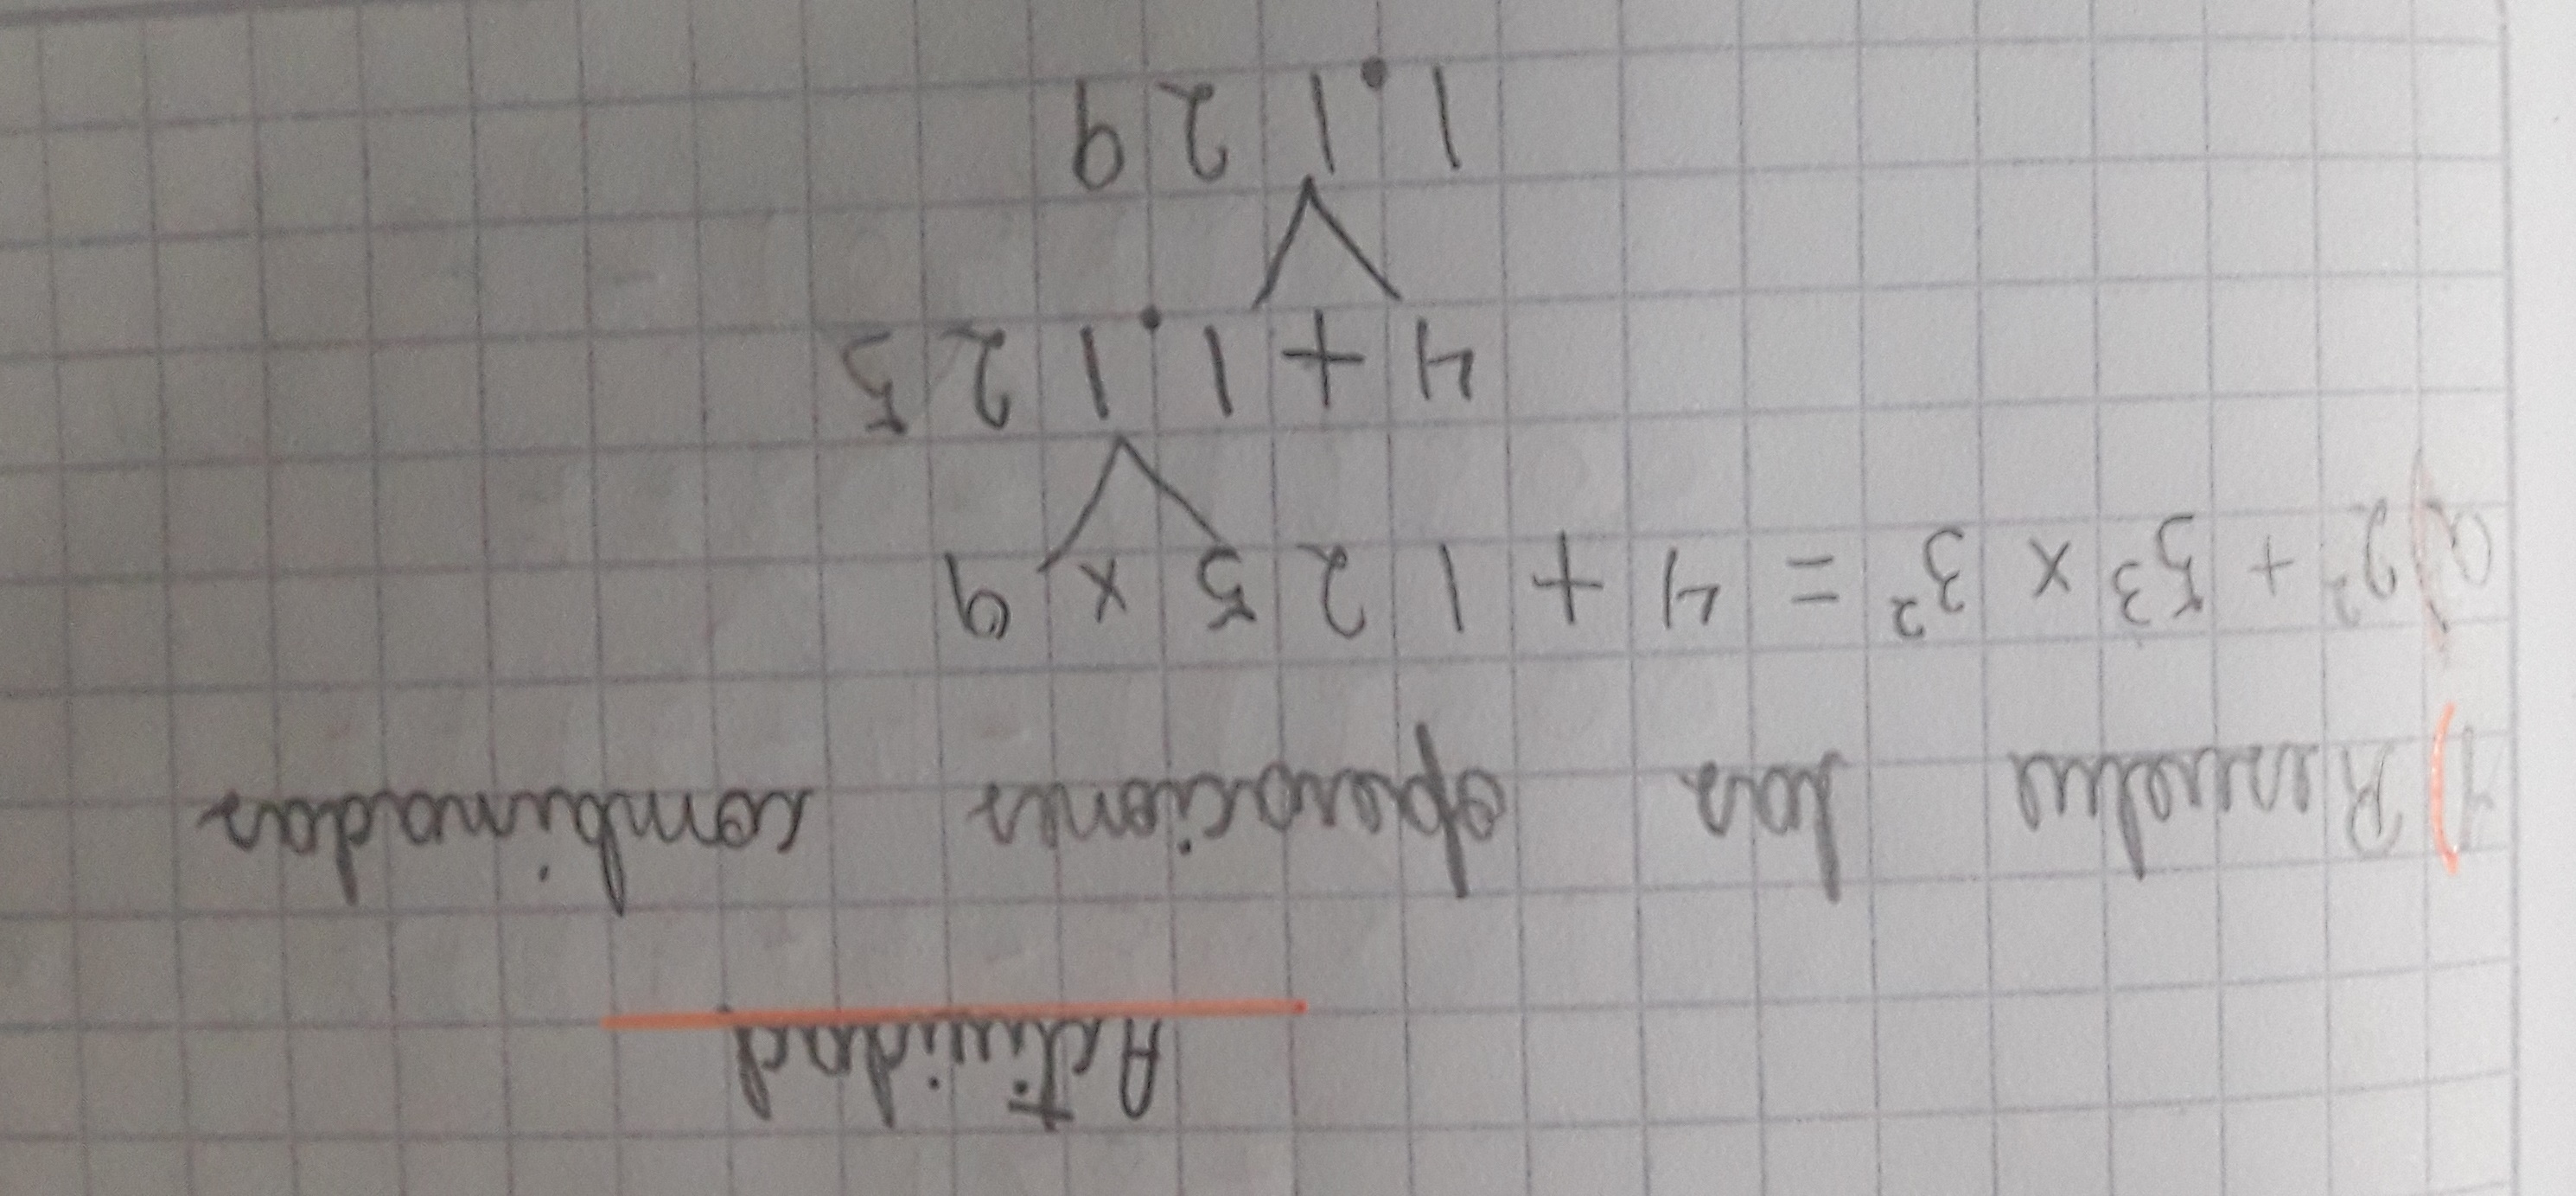 Actividad
1) Resuelve las operaciones combinadas
a) 2² + 5³ x 3² = 4 + 125 x 9
4 + 1.125
1.129